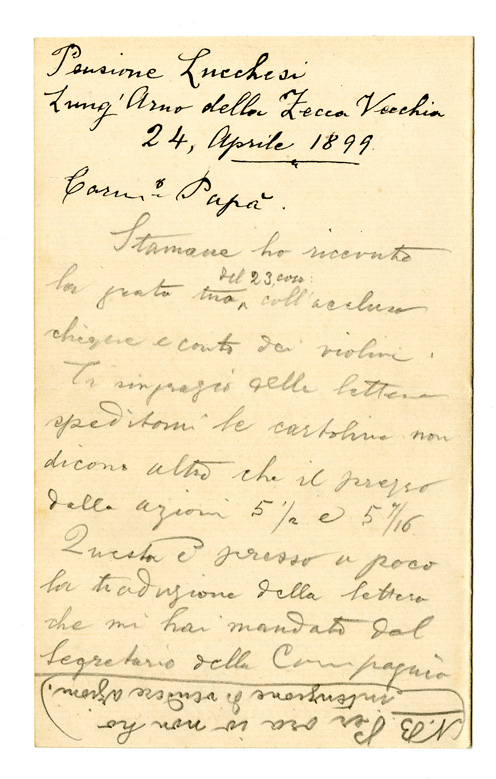 Pensione Lucchesi
Lung' Arno della Zecca Vecchia
24, Aprile 1899
Carm.º Papà.
Stamane ho ricevuto
del 23 corr:
la grata tua, coll'accluso
chèque e conto dei violini.
Ti ringrazio delle lettere
speditomi le cartoline non
dicono altro che il prezzo
delle azioni 5 1/2 e 5 7/16
Questa è presso a poco
la traduzione della lettera
che mi hai mandato dal
Segretario della Compagnia
(N.B. Per ora io non ho
intenzione di vendere azioni.)